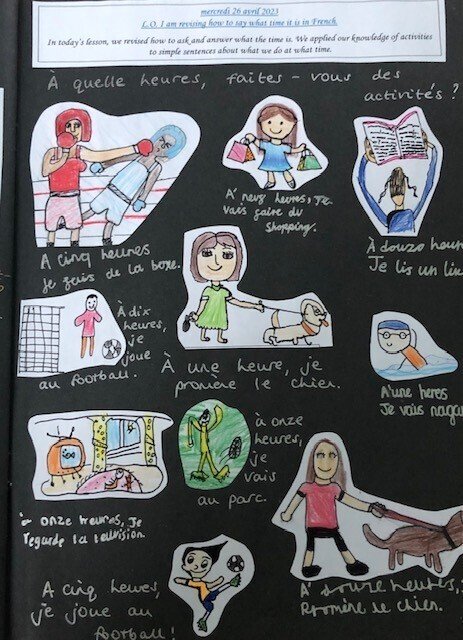 mercredi 26 avril 2023
L.O. I am revising how to say what time it is in French.
In today's lesson, we revised how to ask and answer what the time is. We applied our knowledge of activities
to simple sentences about what we do at what time.
À quelle heures, faites-vous des
activités?
A cinq heures
je fais de la boxe.
A' neuf heures, Je
vais faire du
shopping.
À douze heur
Je lis un liv
À dix
heures,
je
joue
au football.
À une heure, je
promène le chien.
A'une heres
Je vais nagar
à onze heures, Je
regarde la television.
à onze
heures,
je
vais
au parc.
A cinq heures,
je joue au
football!
A' douze heures,
Promine le chien.